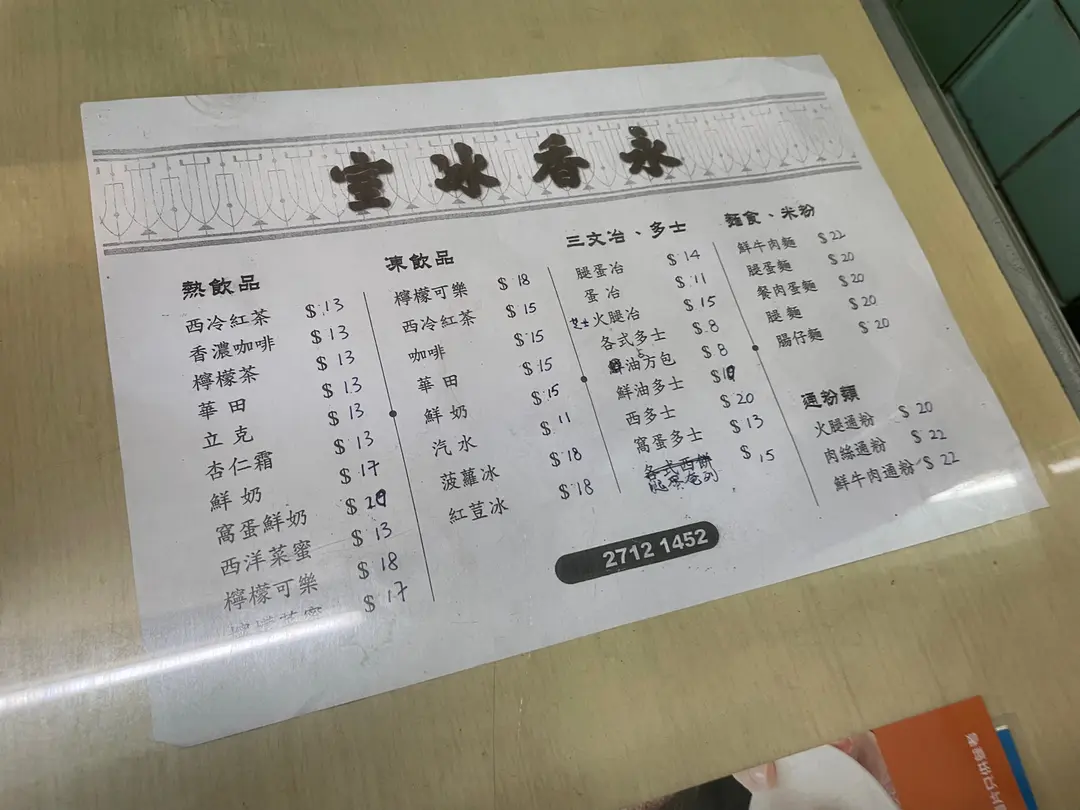 永香冰室
熱飲品
西冷紅茶 $13
香濃咖啡 $13
檸檬茶 $13
華田 $13
立克 $13
杏仁霜 $13
鮮奶 $17
窩蛋鮮奶 $20
西洋菜蜜 $13
檸檬可樂 $18
檸檬菜蜜 $17
凍飲品
檸檬可樂 $18
西冷紅茶 $15
咖啡 $15
華田 $15
鮮奶 $15
汽水 $11
菠蘿冰 $18
紅荳冰 $18
三文冶、多士
腿蛋冶 $14
蛋冶 $11
芝士火腿冶 $15
各式多士 $8
鮮油方包 $8
鮮油多士 $10
西多士 $20
窩蛋多士 $13
各式西餅
腿蛋奄列 $15
麵食、米粉
鮮牛肉麵 $22
腿蛋麵 $20
餐肉蛋麵 $20
腿麵 $20
腸仔麵 $20
通粉類
火腿通粉 $20
肉絲通粉 $22
鮮牛肉通粉 $22
2712 1452